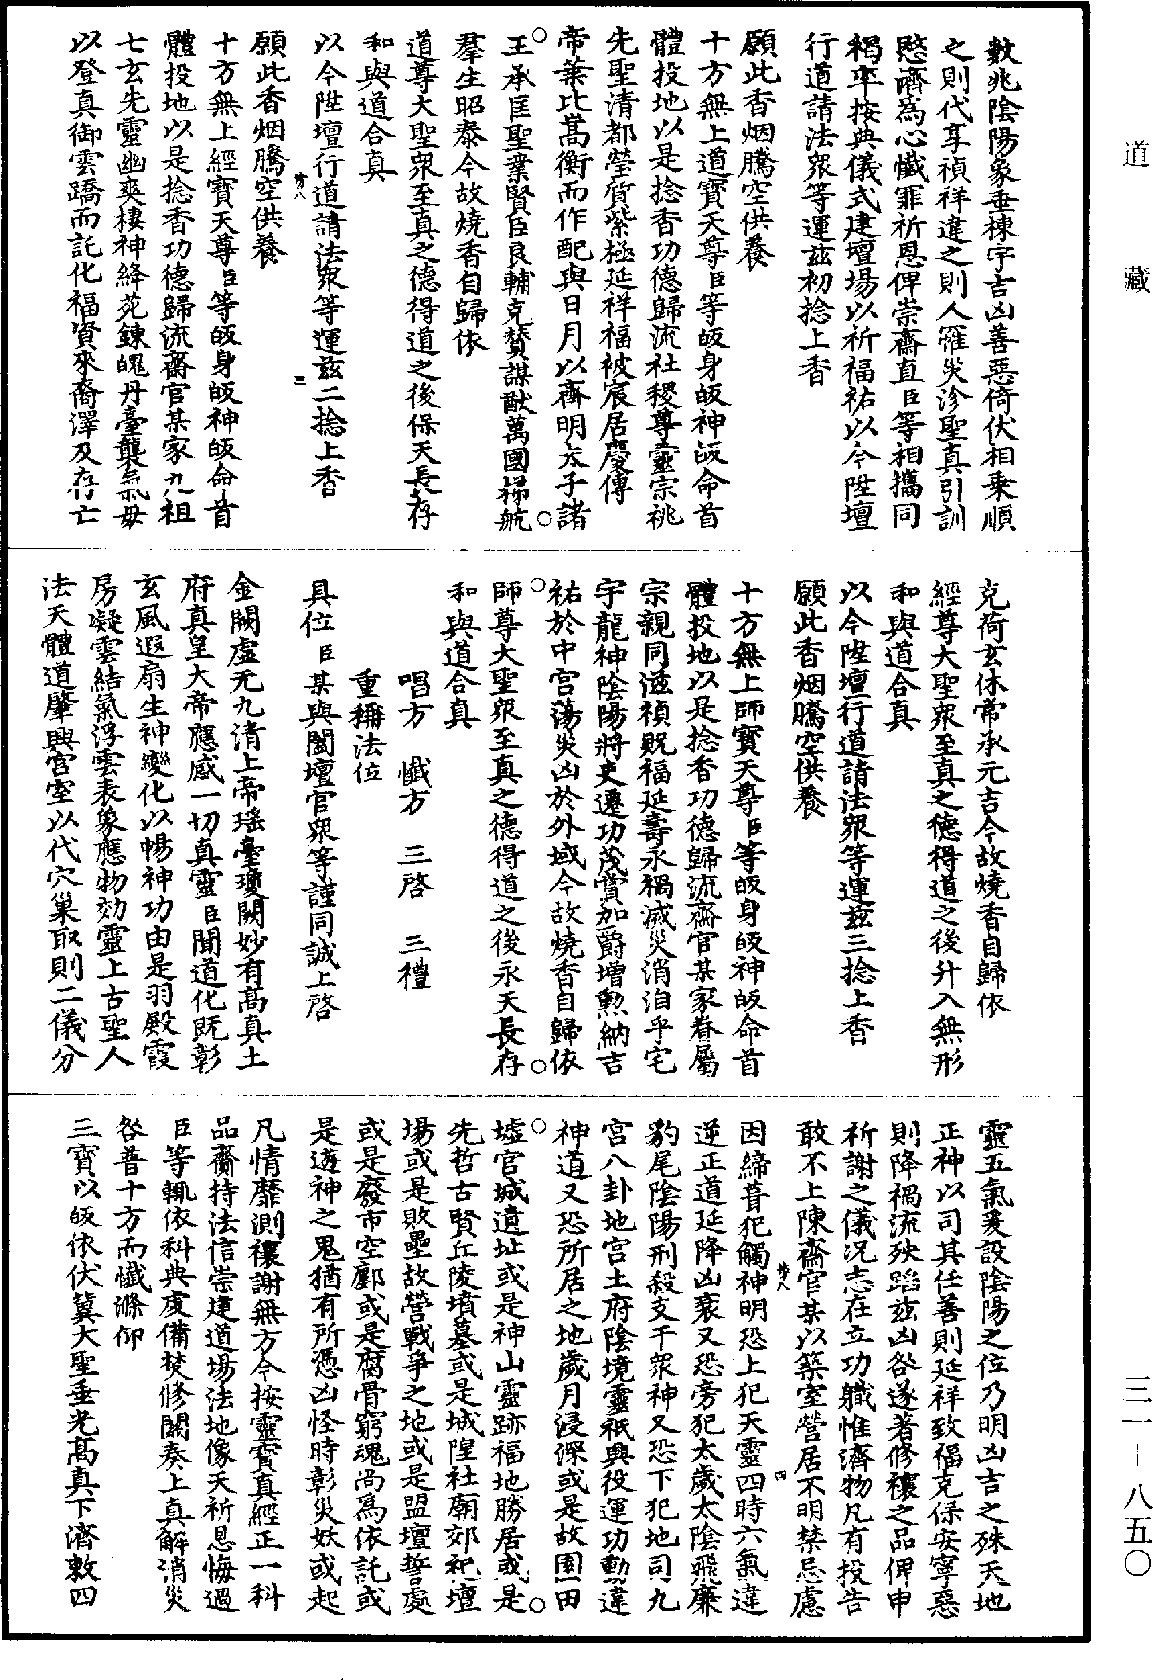 道藏
數兆陰陽象垂棟宇吉凶善惡倚伏相乘順
之則代享禎祥違之則人罹災沴聖真引訓
愍濟為心懺罪祈恩俾崇齋直臣等相攜同
褐平按典儀式建壇場以祈福祐以今陞壇
行道請法眾等運茲初捻上香
願此香烟騰空供養
十方無上道寶天尊臣等皈身皈神皈命首
體投地以是捻香功德歸流社稷尊靈宗祧
先聖清都瑩質紫極延祥福被宸居慶傳
帝業比嵩衡而作配與日月以齊明太子諸
王承匡聖業賢臣良輔克贊謀猷萬國梯航
羣生昭泰今故燒香自歸依
道尊大聖眾至真之德得道之後保天長存
和與道合真
以今陞壇行道請法眾等運茲二捻上香
願此香烟騰空供養
十方無上經寶天尊臣等皈身皈神皈命首
體投地以是捻香功德歸流齋官某家九祖
七玄先靈幽爽棲神絳苑鍊魄丹臺襲氣母
以登真御雲蹻而託化福資來裔澤及存亡
克荷玄休常承元吉今故燒香自歸依
經尊大聖眾至真之德得道之後升入無形
和與道合真
以今陞壇行道請法眾等運茲三捻上香
願此香烟騰空供養
十方無上師寶天尊臣等皈身皈神皈命首
體投地以是捻香功德歸流齋官某家眷屬
宗親同滋禎貺福延壽永禍滅災消洎乎宅
宇龍神陰陽將吏遷功茂賞加爵增勲納吉
祐於中宮蕩災凶於外域今故燒香自歸依
師尊大聖眾至真之德得道之後永天長存
和與道合真
唱方 懺方 三啓 三禮
重稱法位
具位臣某與闔壇官眾等謹同誠上啓
金闕虛无九清上帝瑤臺瓊闕妙有高真土
府真皇大帝應感一切真靈臣聞道化既彰
玄風遐扇生神變化以暢神功由是羽殿霞
房凝雲結氣浮雲表象應物効靈上古聖人
法天體道肇興宮室以代穴巢取則二儀分
靈五氣爰設陰陽之位乃明凶吉之殊天地
正神以司其任善則延祥致福克保安寧惡
則降禍流殃蹈茲凶咎遂著修禳之品俾申
祈謝之儀況志在立功職惟濟物凡有投告
敢不上陳齋官某以築室營居不明禁忌慮
因締葺犯觸神明恐上犯天靈四時六氣違
逆正道延降凶衰又恐旁犯太歲太陰飛廉
豹尾陰陽刑殺支干眾神又恐下犯地司九
宮八卦地宮土府陰境靈祇興役運功動違
神道又恐所居之地歲月浸深或是故園田
墟官城遺址或是神山靈跡福地勝居或是
先哲古賢丘陵墳墓或是城隍社廟郊祀壇
場或是敗壘故營戰爭之地或是盟壇誓處
或是廢市空鄽或是腐骨窮魂尚為依託或
是遊神之鬼猶有所憑凶怪時彰災妖或起
凡情靡測禳謝無方今按靈寶真經正一科
品齎持法信崇建道場法地像天祈恩悔過
臣等輒依科典虔備焚修關奏上真解消災
咎普十方而懺滌仰
三寶以皈依伏冀大聖垂光高真下濟敕四
三一－八五〇